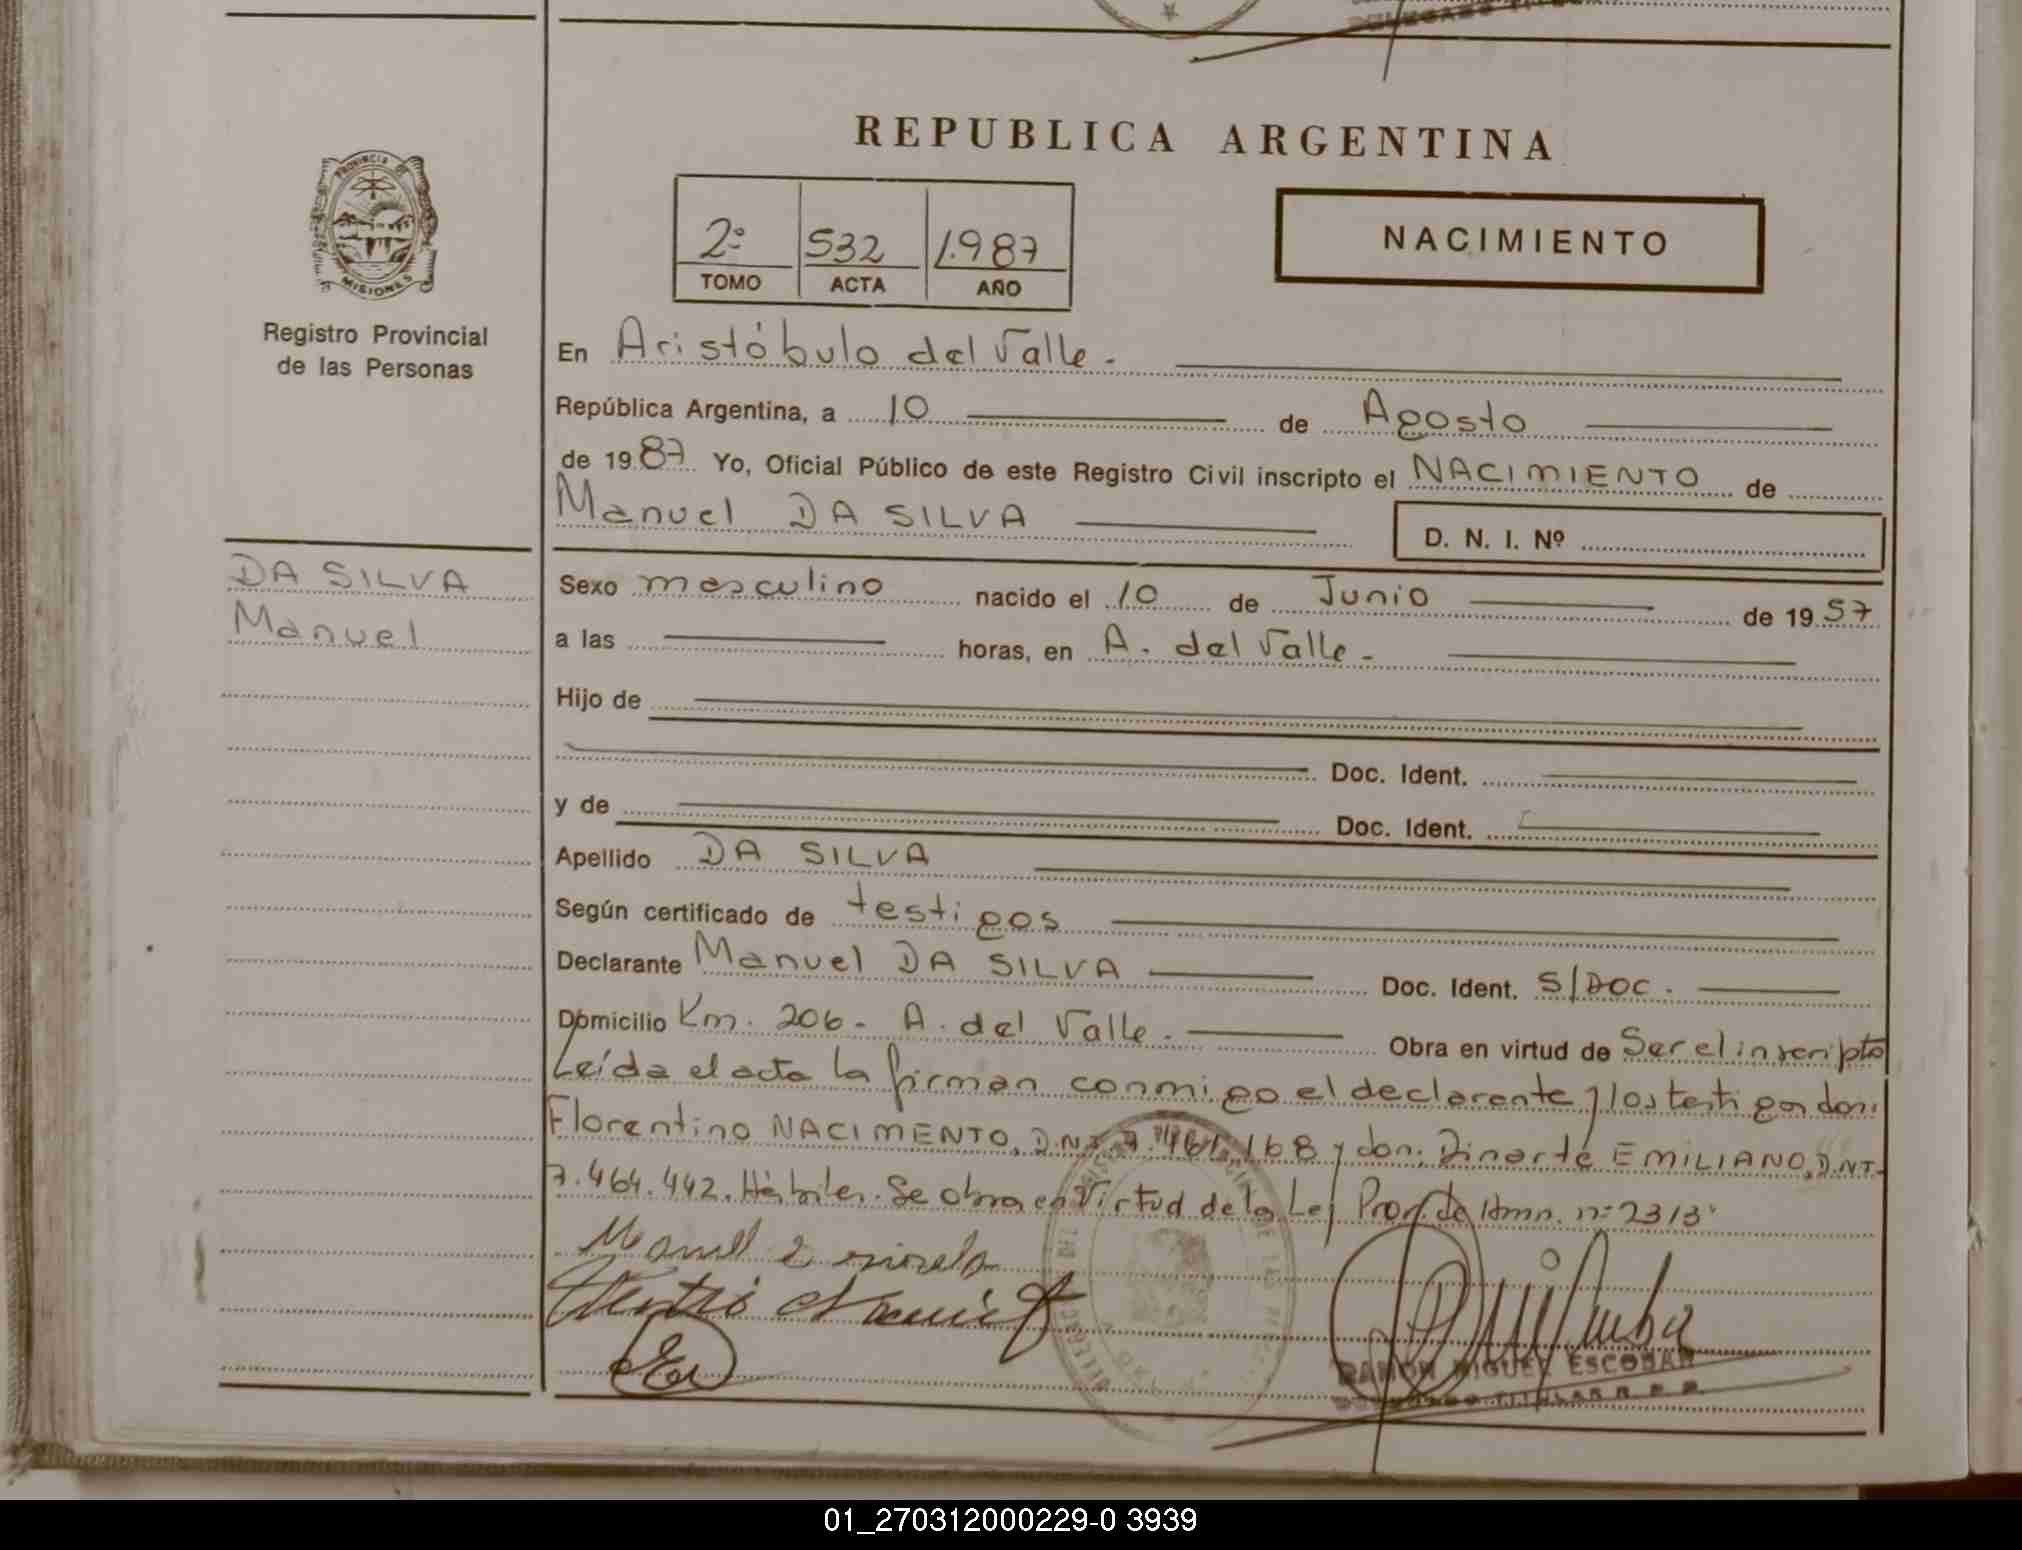 REPUBLICA ARGENTINA
PROVINCIA DE MISIONES
Registro Provincial
de las Personas
2º 532 1.987
TOMO ACTA AÑO
NACIMIENTO
En Aristóbulo del Valle.
República Argentina, a 10 de Agosto
de 1987 Yo, Oficial Público de este Registro Civil inscripto el NACIMIENTO de
Manuel DA SILVA
D. N. I. Nº
DA SILVA
Manuel
Sexo masculino nacido el 10 de Junio de 1957
a las horas, en A. del Valle.
Hijo de
Doc. Ident.
y de Doc. Ident.
Apellido DA SILVA
Según certificado de testigos
Declarante Manuel DA SILVA Doc. Ident. S/DOC.
Domicilio Km. 206. A. del Valle. Obra en virtud de Ser el inscripto
Leída el acta la firman conmigo el declarante y los testigos don:
Florentino NACIMENTO, D.N.I. 7.461.168 y don: Dinarte EMILIANO, D.N.I.
7.464.442. Hábiles. Se obra en Virtud de la Ley Prov. de Amn. nº 2313
Manuel
RAMON MIGUEL ESCOBAR
DELEGADO TITULAR R. P. P.
01_270312000229-0 3939